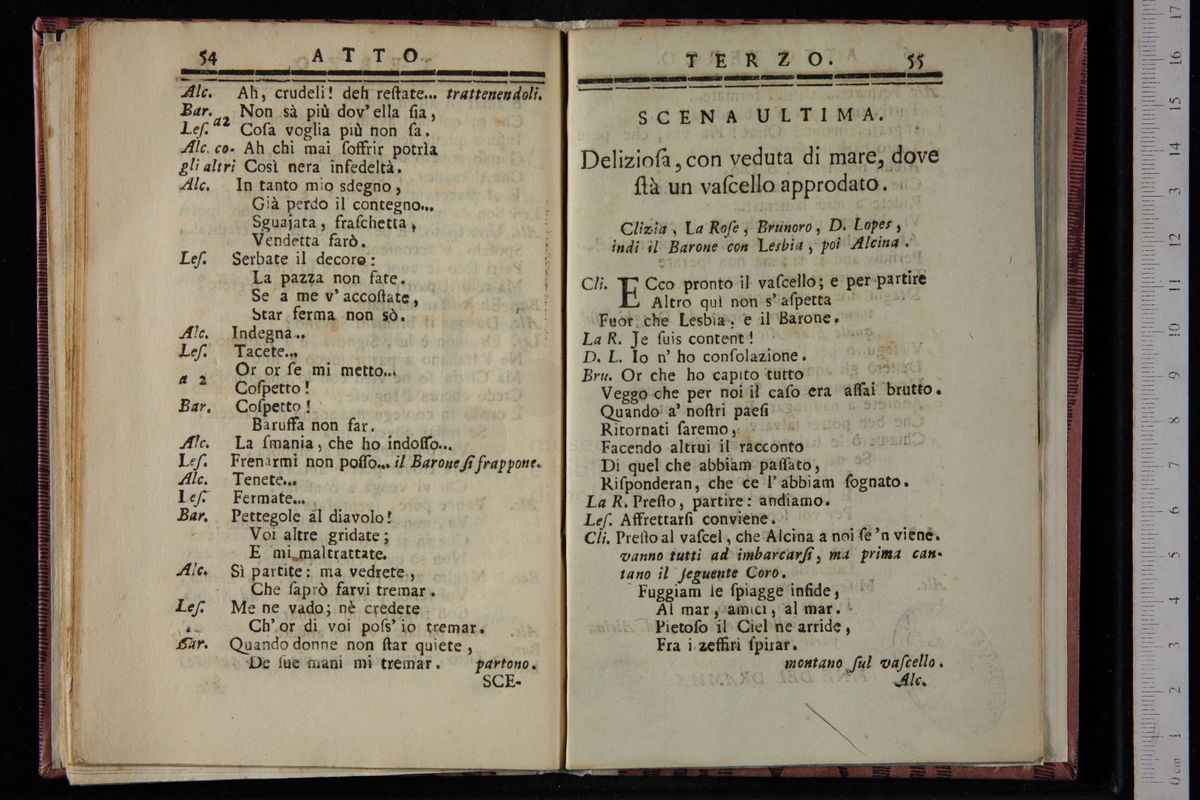 54 ATTO
Alc. Ah, crudeli! deh reſtate... trattenendoli.
Bar. Non sà più dov' ella ſia,
a2
Leſ. Coſa voglia più non ſa.
Alc. co- Ah chi mai ſoffrir potrìa
gli altri Così nera infedeltà.
Alc. In tanto mio sdegno,
Già perdo il contegno...
Sguajata, fraſchetta,
Vendetta farò.
Leſ. Serbate il decoro:
La pazza non fate.
Se a me v' accoſtate,
Star ferma non sò.
Alc. Indegna...
Leſ. Tacete...
a 2 Or or ſe mi metto...
Coſpetto!
Bar. Coſpetto!
Baruffa non far.
Alc. La ſmania, che ho indoſſo...
Leſ. Frenarmi non poſſo... il Barone ſi frappone.
Alc. Tenete...
Leſ. Fermate...
Bar. Pettegole al diavolo!
Voi altre gridate;
E mi maltrattate.
Alc. Sì partite: ma vedrete,
Che ſaprò farvi tremar.
Leſ. Me ne vado; nè credete
Ch' or di voi poſs' io tremar.
Bar. Quando donne non ſtar quiete,
De ſue mani mi tremar. partono.
SCE-
TERZO. 55
SCENA ULTIMA.
Delizioſa, con veduta di mare, dove
ſtà un vaſcello approdato.
Clizia, La Roſe, Brunoro, D. Lopes,
indi il Barone con Lesbia, poi Alcina.
Cli. ECco pronto il vaſcello; e per partire
Altro quì non s' aſpetta
Fuor che Lesbia, e il Barone.
La R. Je ſuis content!
D. L. Io n' ho conſolazione.
Bru. Or che ho capito tutto
Veggo che per noi il caſo era aſſai brutto.
Quando a' noſtri paeſi
Ritornati ſaremo,
Facendo altrui il racconto
Di quel che abbiam paſſato,
Riſponderan, che ce l' abbiam ſognato.
La R. Preſto, partire: andiamo.
Leſ. Affrettarſi conviene.
Cli. Preſto al vaſcel, che Alcina a noi ſe 'n viene.
vanno tutti ad imbarcarſi, ma prima can-
tano il ſeguente Coro.
Fuggiam le ſpiagge infide,
Al mar, amici, al mar.
Pietoſo il Ciel ne arride,
Fra i zeffiri ſpirar.
montano ſul vaſcello.
Alc.